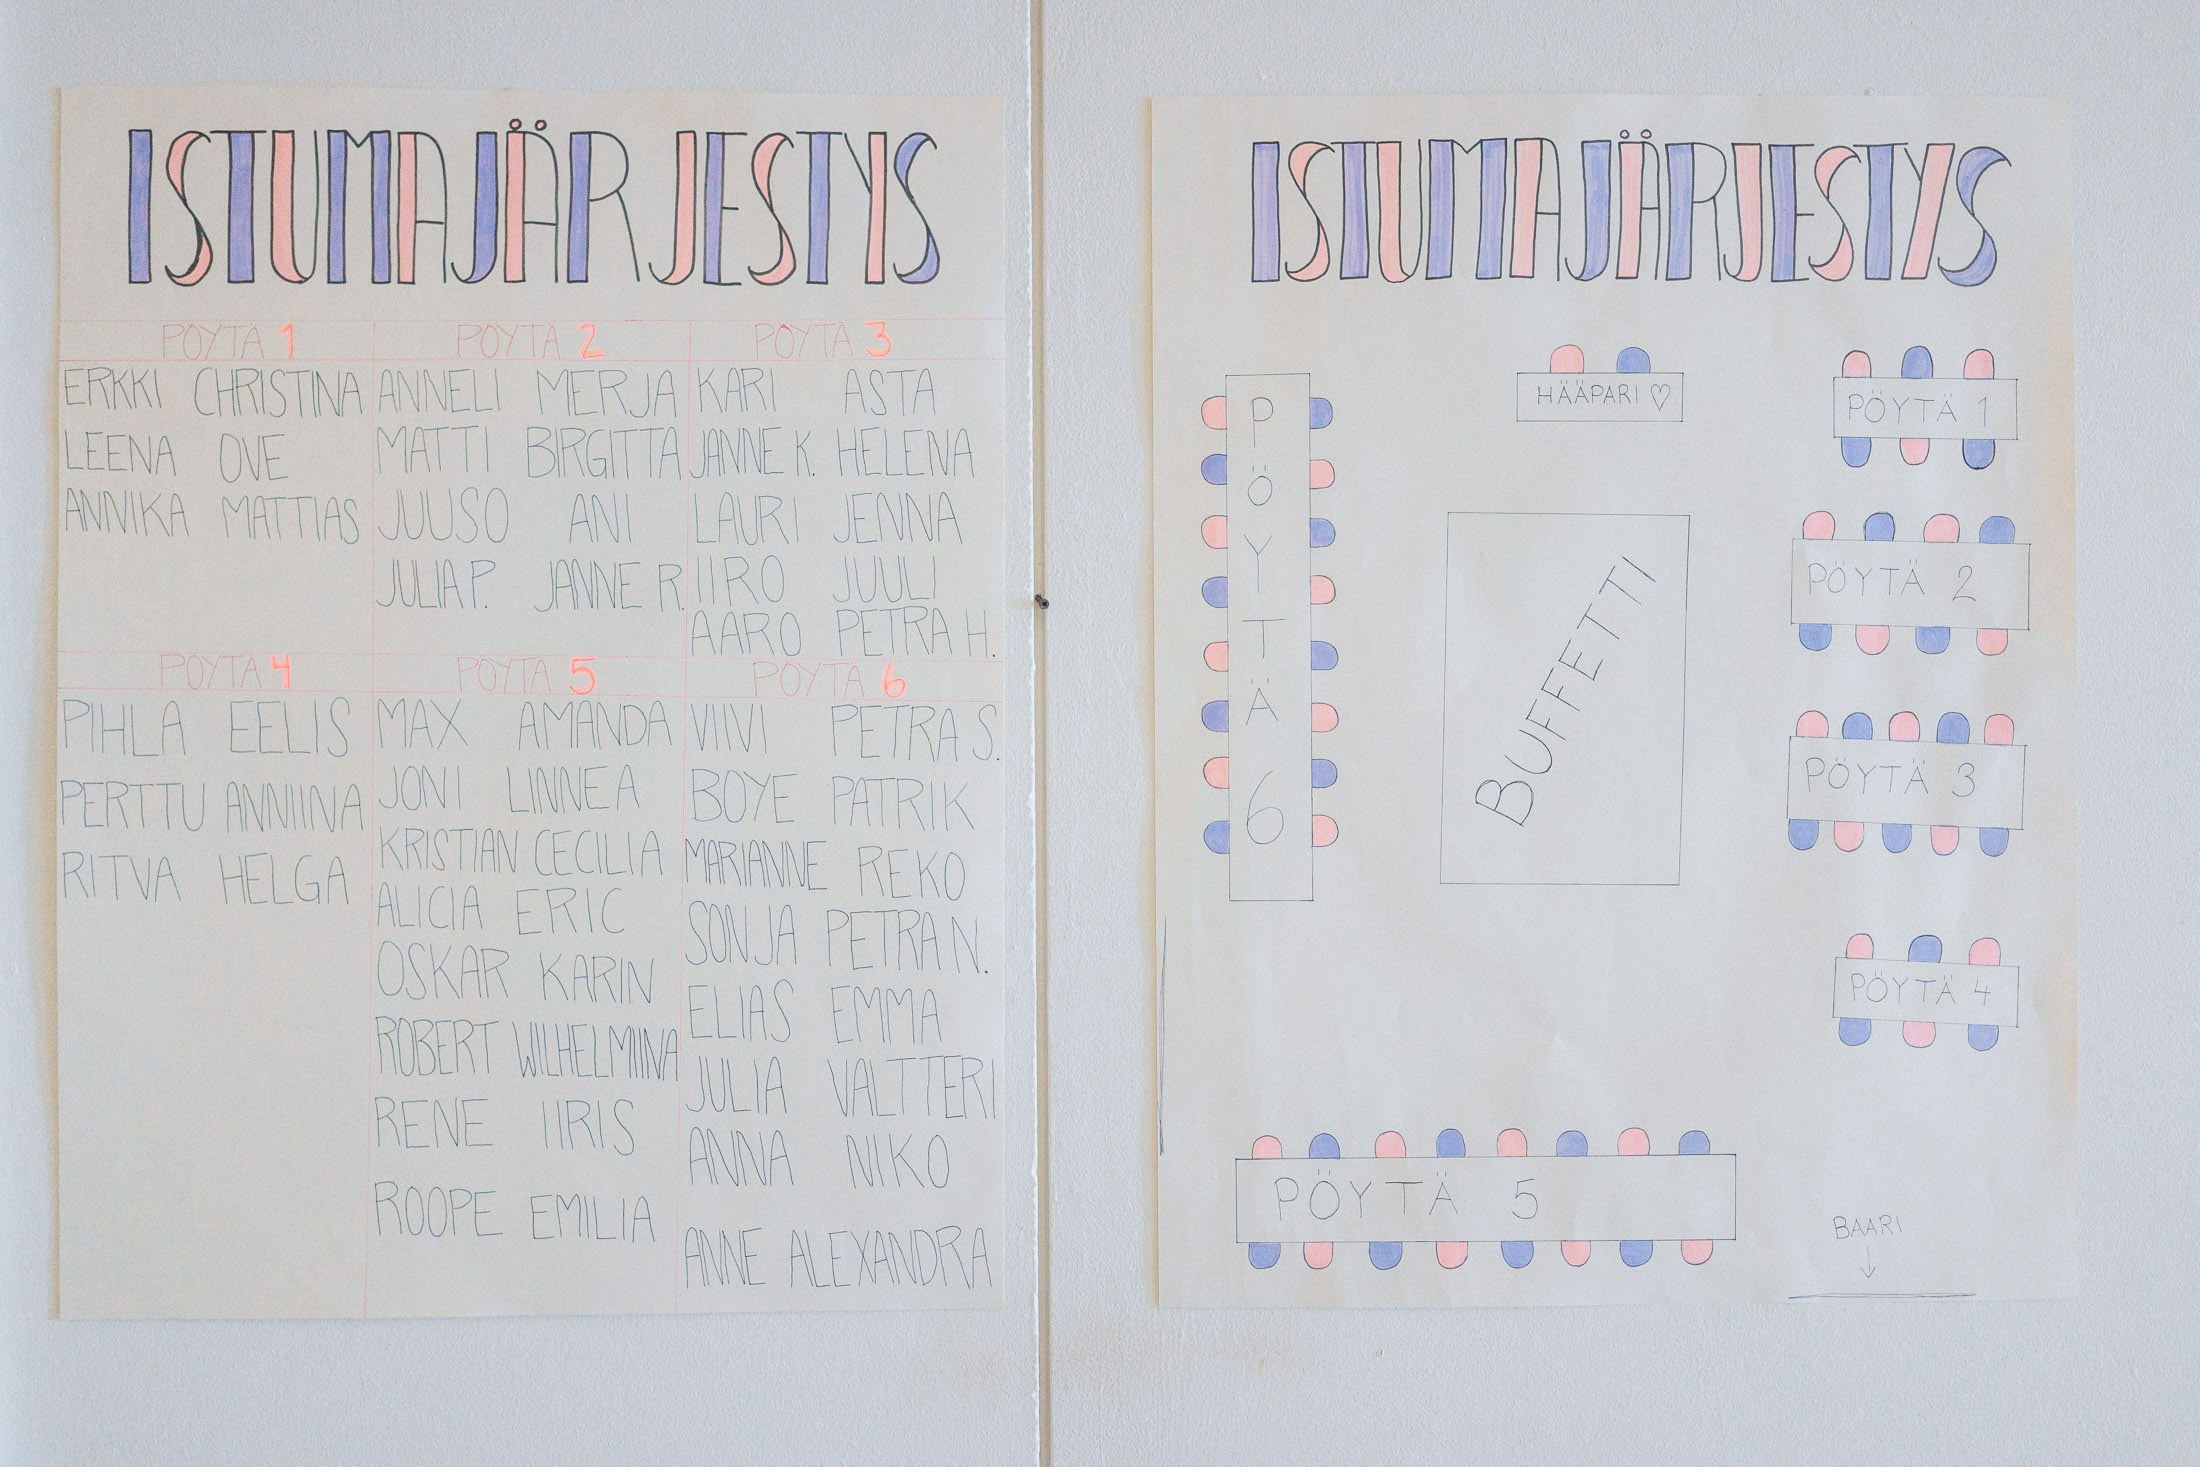 ISTUMAJÄRJESTYS
PÖYTÄ 1
ERKKI CHRISTINA
LEENA OVE
ANNIKA MATTIAS
PÖYTÄ 2
ANNELI MERJA
MATTI BIRGITTA
JUUSO ANI
JULIA P. JANNE R.
PÖYTÄ 3
KARI ASTA
JANNE K. HELENA
LAURI JENNA
IIRO JUULI
AARO PETRA H.
PÖYTÄ 4
PIHLA EELIS
PERTTU ANNIINA
RITVA HELGA
PÖYTÄ 5
MAX AMANDA
JONI LINNEA
KRISTIAN CECILIA
ALICIA ERIC
OSKAR KARIN
ROBERT WILHELMIINA
RENE IIRIS
ROOPE EMILIA
PÖYTÄ 6
VIIVI PETRA S.
BOYE PATRIK
MARIANNE REKO
SONJA PETRA N.
ELIAS EMMA
JULIA VALTTERI
ANNA NIKO
ANNE ALEXANDRA
ISTUMAJÄRJESTYS
HÄÄPARI ♡
PÖYTÄ 1
PÖYTÄ 2
PÖYTÄ 3
PÖYTÄ 4
PÖYTÄ 6
BUFFETTI
PÖYTÄ 5
BAARI
↓